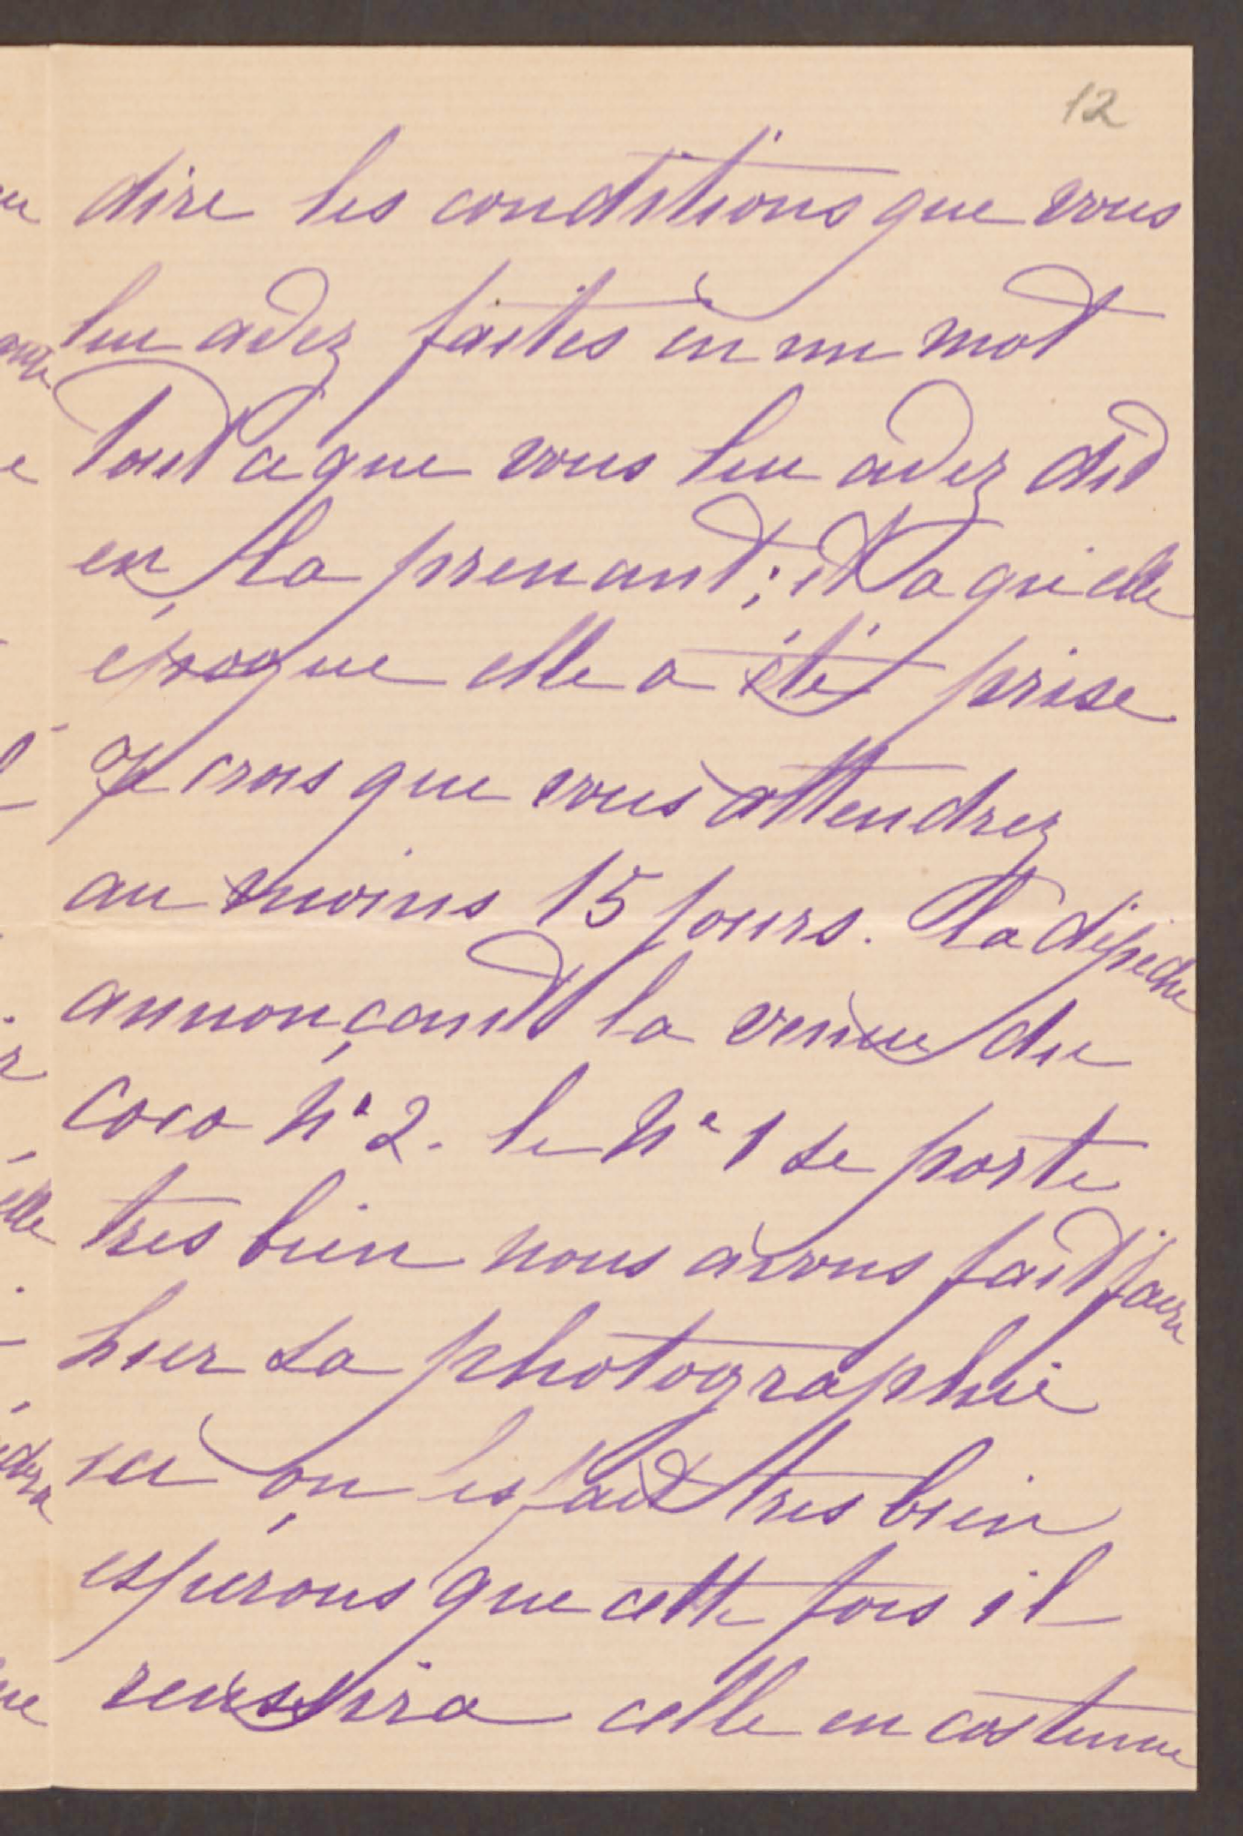 12
dire les conditions que vous
lui avez faites en un mot
Tout ce que vous lui avez dit
en la prenant; et a quelle
époque elle a été prise
Je crois que vous attendrez
au moins 15 jours. La dépêche
annonçant la venue du
coco N° 2. le N° 1 se porte
tres bien nous avons fait faire
hier sa photographie
ici on les fait tres bien
esperons que cette fois il
reussira celle en costume